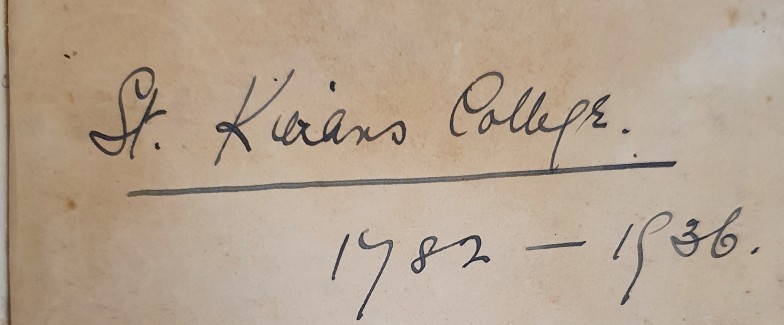 St. Kierans College.
1782 — 1936.